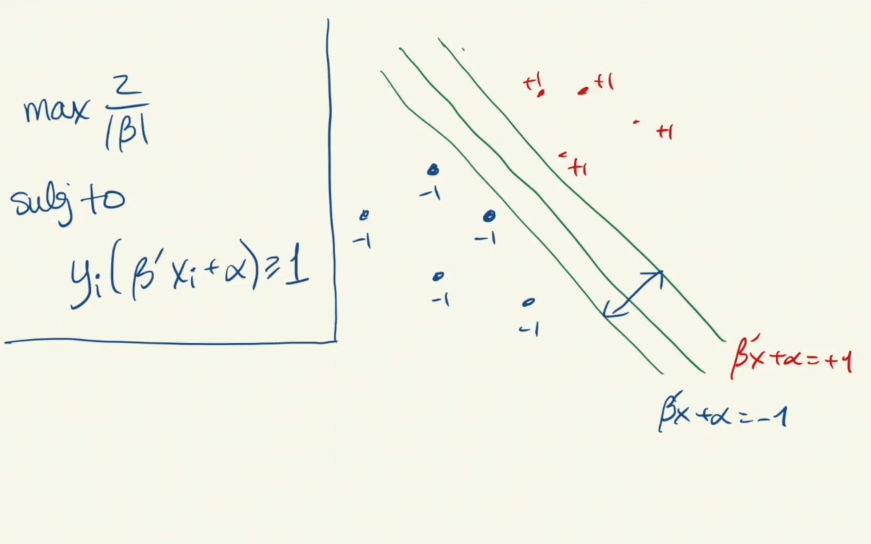 max 2/|β|
subj to
yᵢ(β′xᵢ+α)≥1
+1
+1
+1
+1
-1
-1
-1
-1
-1
β′x+α=+1
β′x+α=-1